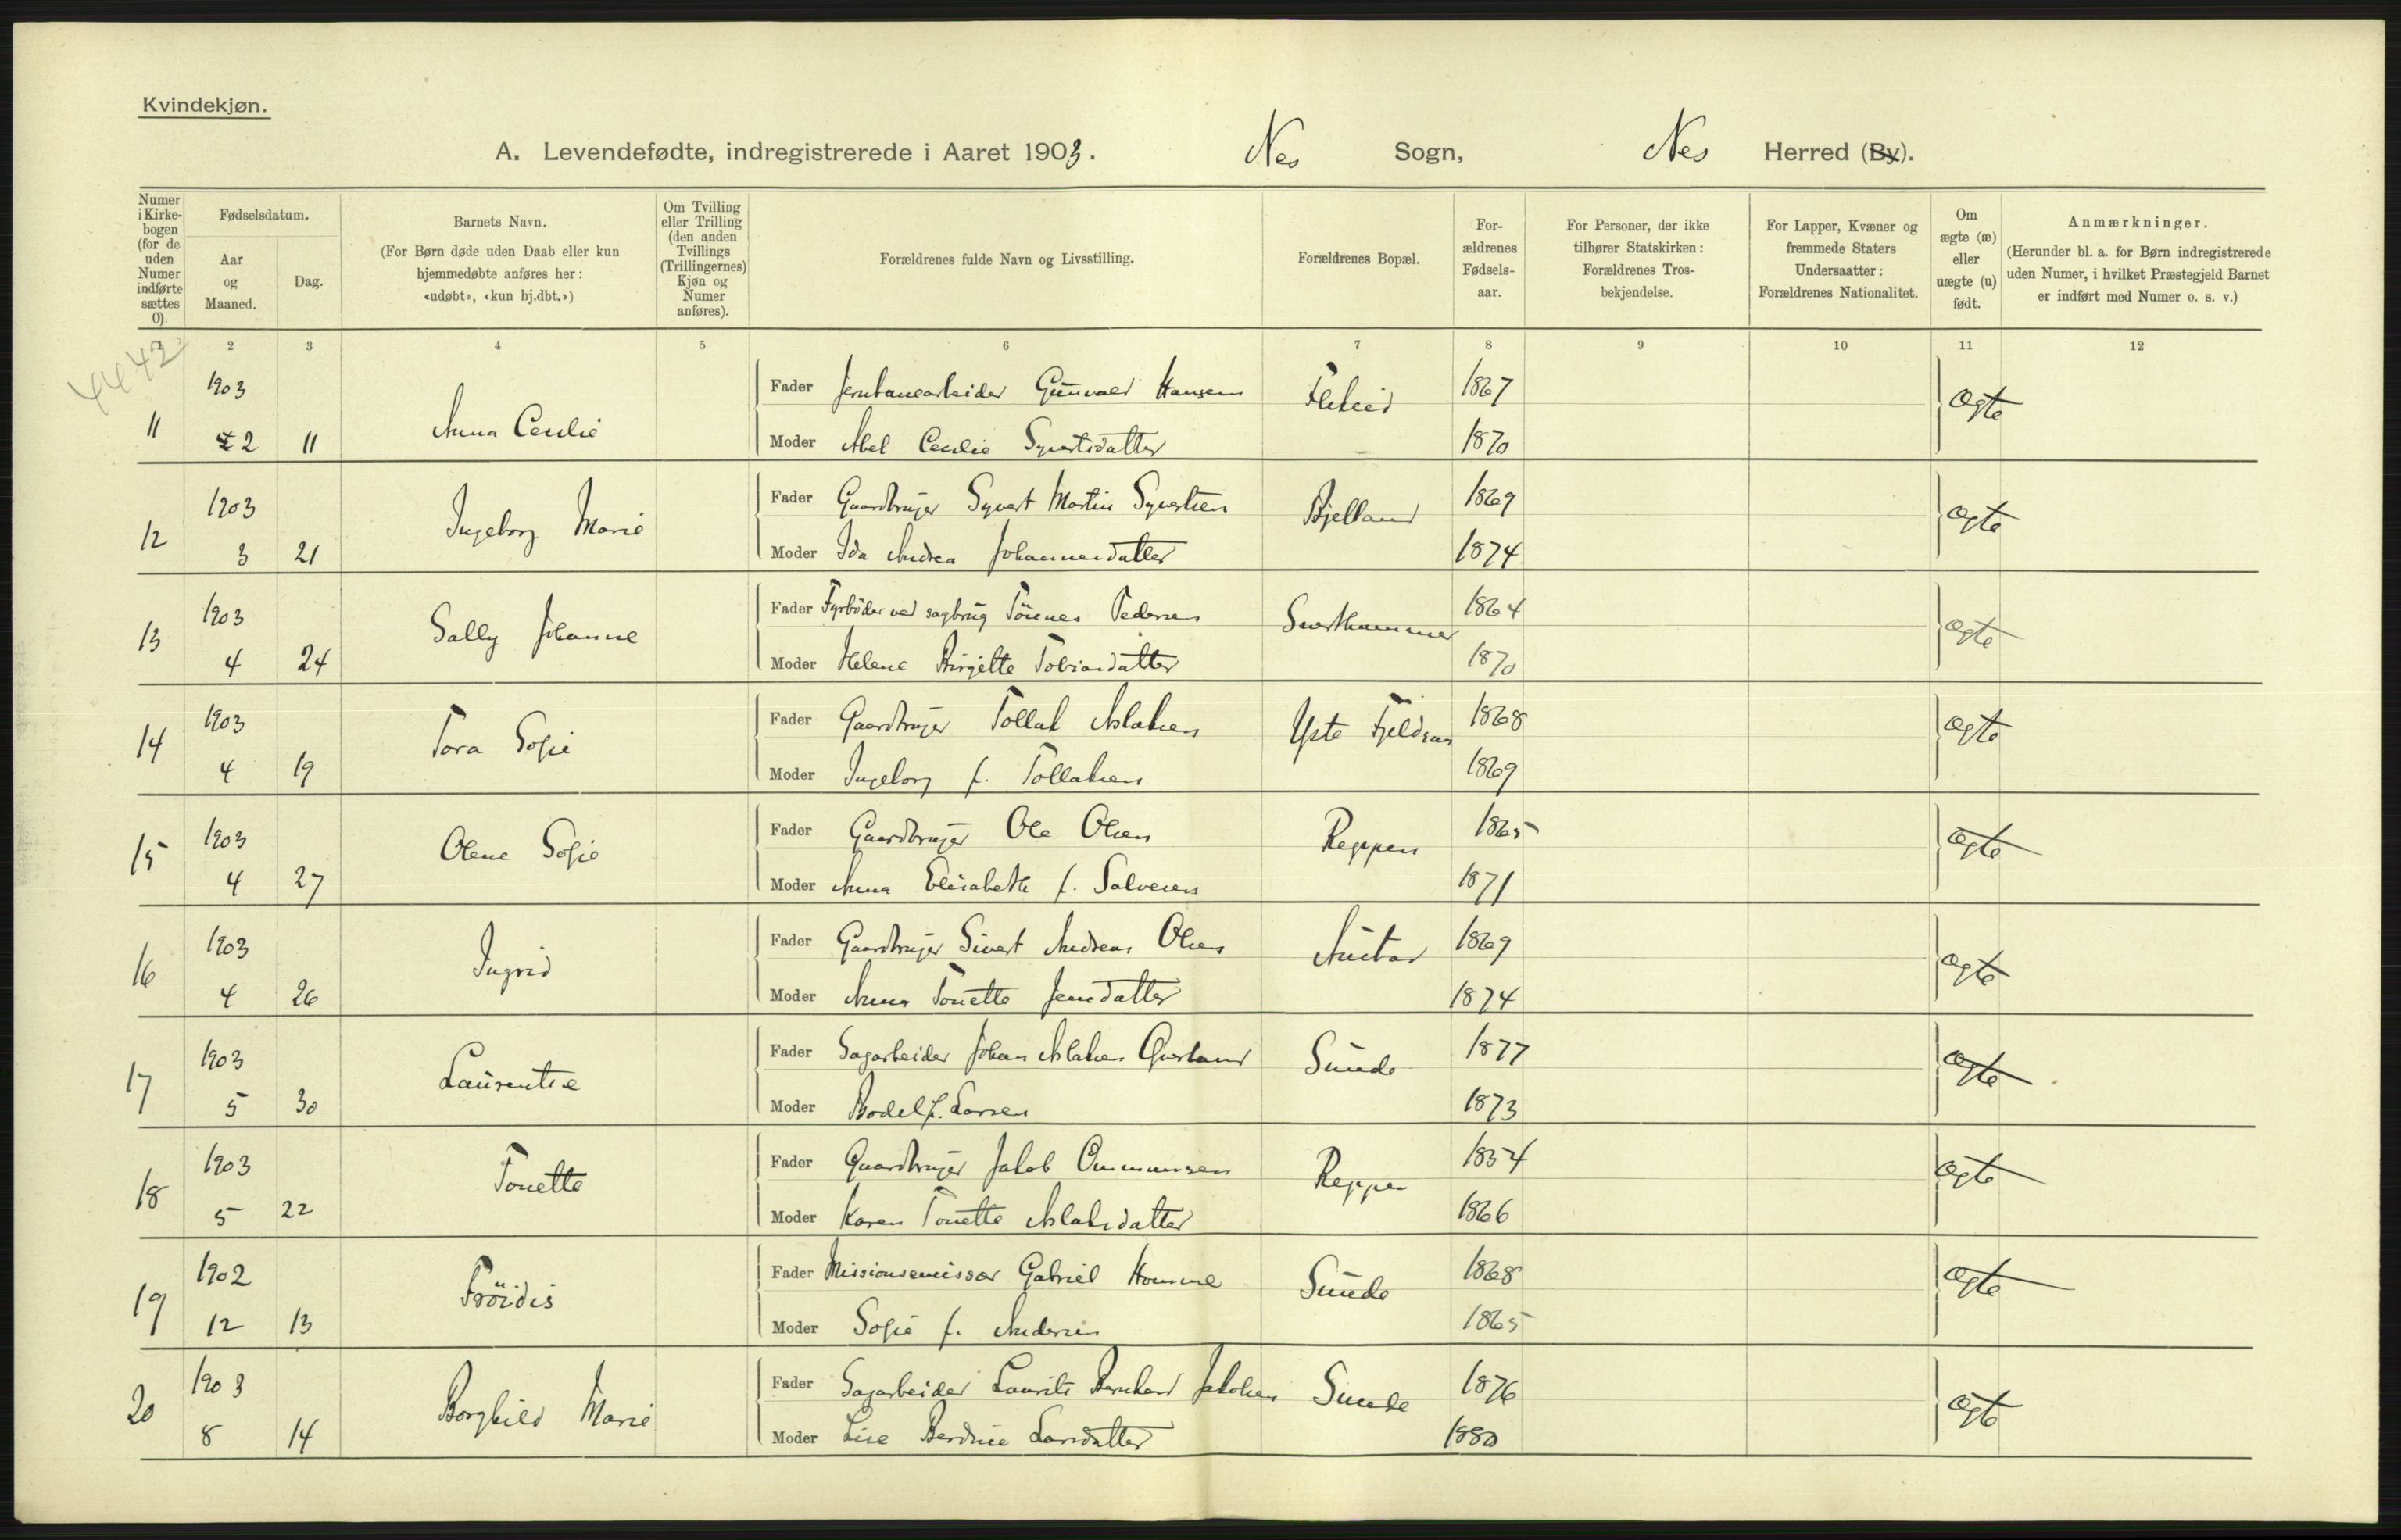 Kvindekjøn.
A. Levendefødte, indregistrerede i Aaret 1903. Nes Sogn, Nes Herred (By).
Numer i Kirkebogen (for de uden Numer indførte sættes 0).
Fødselsdatum.
Aar og Maaned.
Dag.
Barnets Navn.
(For Børn døde uden Daab eller kun hjemmedøbte anføres her: «udøbt», «kun hj.dbt.»)
Om Tvilling eller Trilling (den anden Tvillings (Trillingernes) Kjøn og Numer anføres).
Forældrenes fulde Navn og Livsstilling.
Forældrenes Bopæl.
Forældrenes Fødselsaar.
For Personer, der ikke tilhører Statskirken: Forældrenes Trosbekjendelse.
For Lapper, Kvæner og fremmede Staters Undersaatter: Forældrenes Nationalitet.
Om ægte (æ) eller uægte (u) født.
Anmærkninger.
(Herunder bl. a. for Børn indregistrerede uden Numer, i hvilket Præstegjeld Barnet er indført med Numer o. s. v.)
2 3 4 5 6 7 8 9 10 11 12
4442
11 1903 2 11 Anna Cecilie
Fader Jernbanearbeider Gunvald Hansen 1867 ægte
Moder Abel Cecilie Syvertsdatter 1870
12 1903 3 21 Ingeborg Marie
Fader Gaardbruger Syvert Martin Syvertsen Bjelland 1869 ægte
Moder Ida Andrea Johannesdatter 1874
13 1903 4 24 Sally Johanne
Fader Fyrbøder ved sagbrug Tönnes Pedersen Svarthammer 1864 ægte
Moder Helene Birgitte Tobiasdatter 1870
14 1903 4 19 Tora Sofie
Fader Gaardbruger Tollak Aslaksen 1868 ægte
Moder Ingeborg f. Tollaksen 1869
15 1903 4 27 Olene Sofie
Fader Gaardbruger Ole Olsen Reppen 1865 ægte
Moder Anna Elisabeth f. Salvesen 1871
16 1903 4 26 Ingrid
Fader Gaardbruger Sivert Andreas Olsen Austad 1869 ægte
Moder Anna Tonette Jensdatter 1874
17 1903 5 30 Laurentse
Fader Sagarbeider Johan Aslaksen 1877 Sunde ægte
Moder Bodel f. Larsen 1873
18 1903 5 22 Tonette
Fader Gaardbruger Jakob Ommunsen Reppen 1854 ægte
Moder Karen Tonette Aslaksdatter 1866
19 1902 12 13 Fröidis
Fader Missionsemissær Gabriel Homme Sunde 1868 ægte
Moder Sofie f. Andersen 1865
20 1903 8 14 Borghild Marie
Fader Sagarbeider Laurits Bernhard Jakobsen Sunde 1876 ægte
Moder Lise Berdine Larsdatter 1880